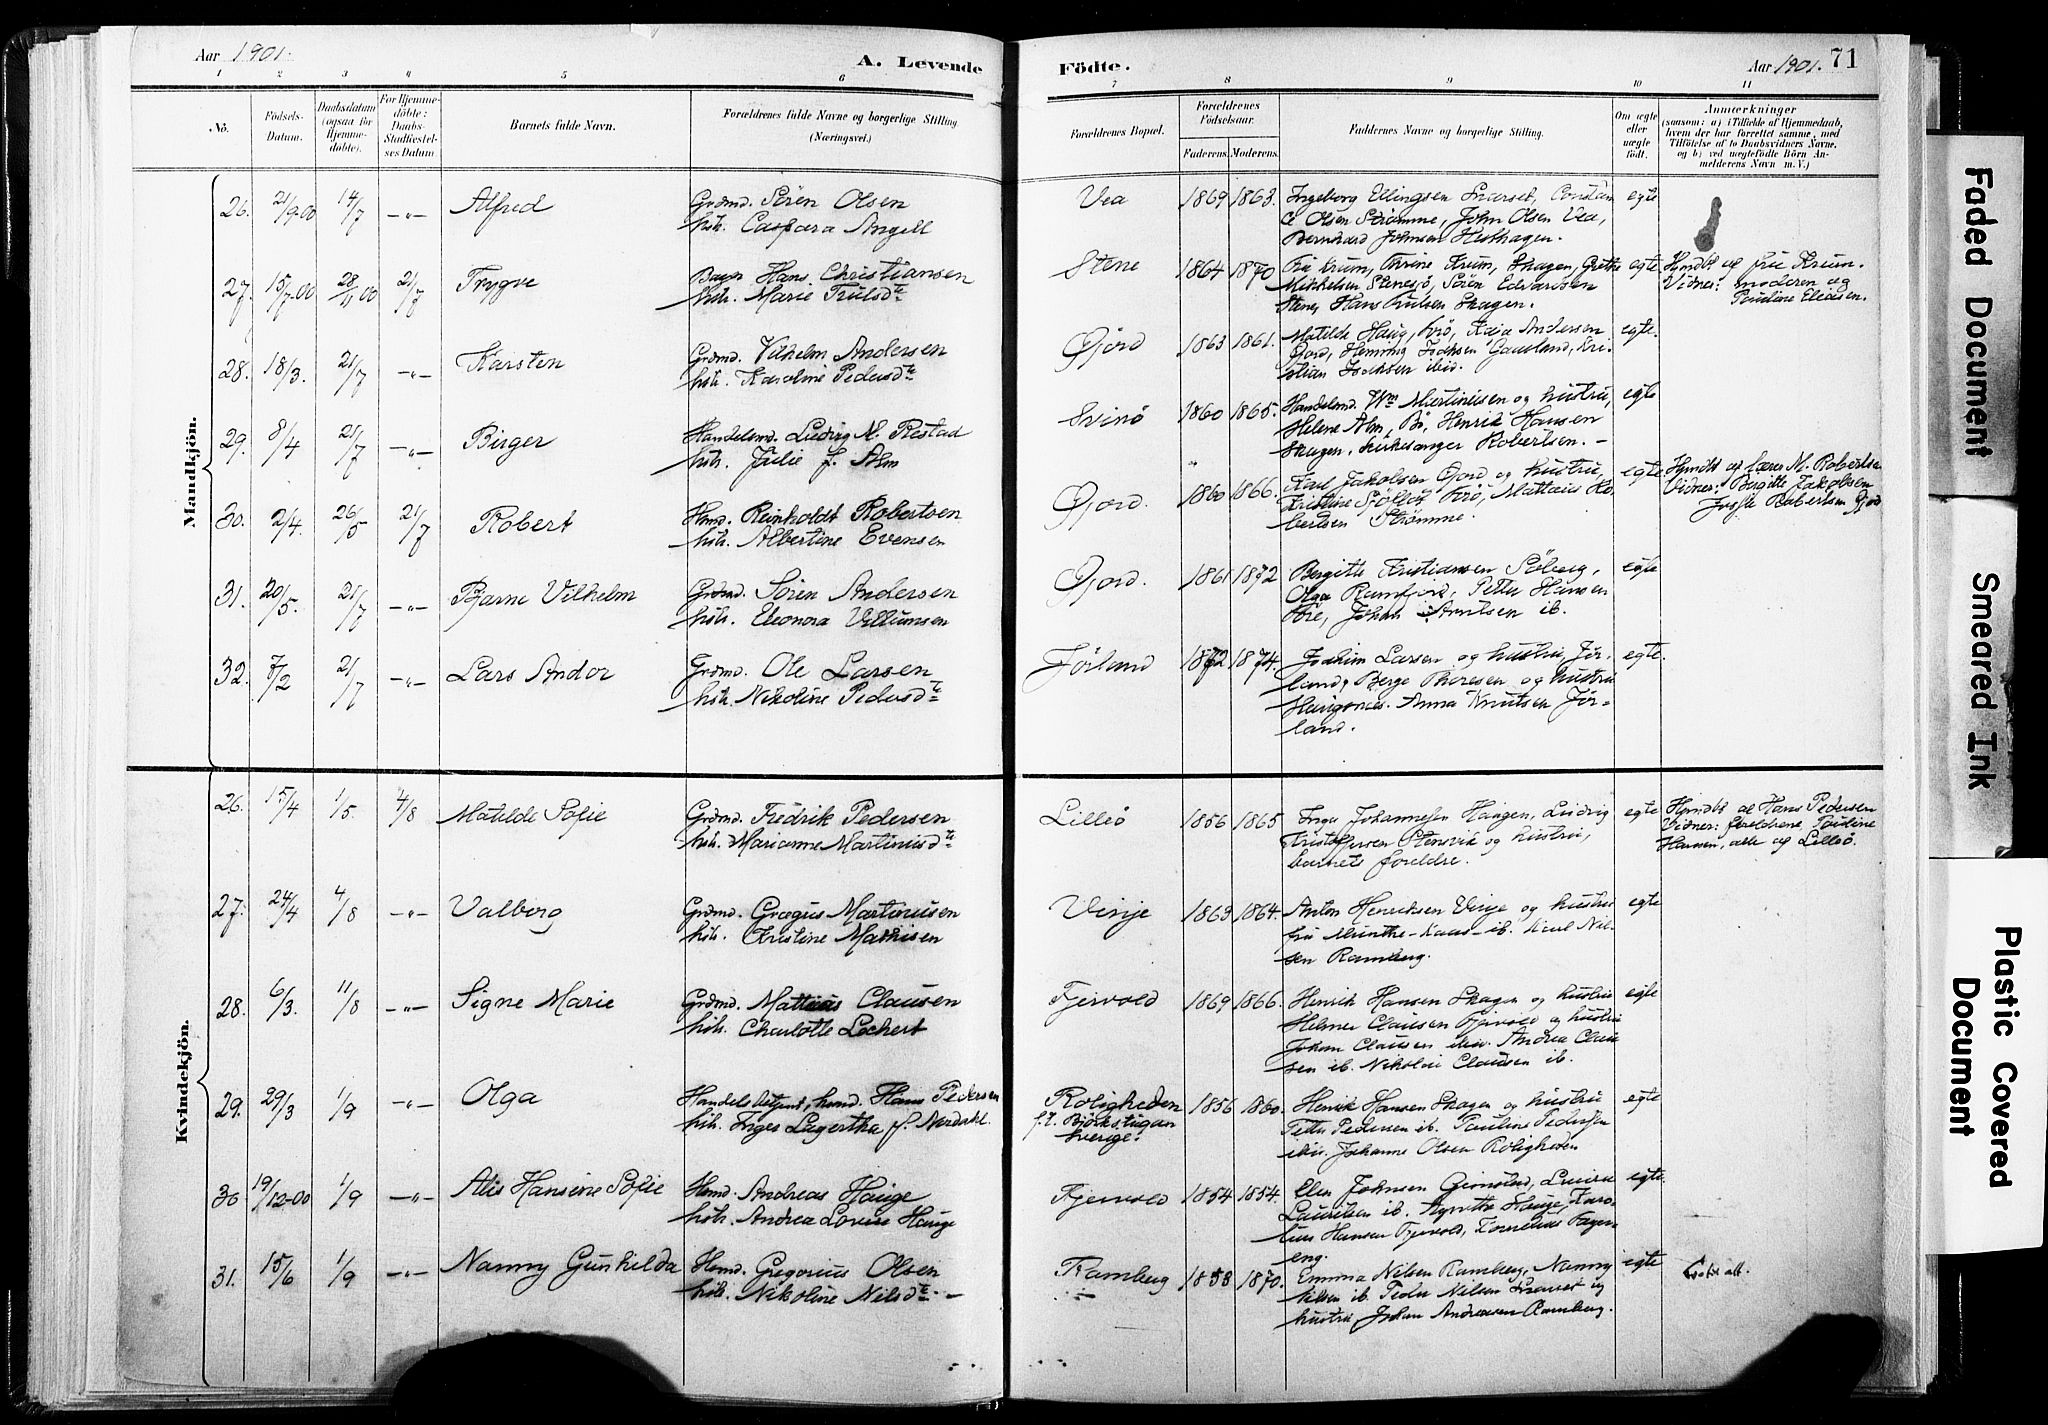 Aar 1901.
A. Levende
Födte.
Aar 1901.
71
1 2 3 4 5 6 7 8 9 10 11
No.
Födsels-
Datum.
Daabsdatum
(ogsaa for
Hjemme-
döbte).
For Hjemme-
döbte:
Daabs-
Stadfæstel-
ses Datum
Barnets fulde Navn.
Forældrenes fulde Navne og borgerlige Stilling
(Næringsvei.)
Forældrenes Bopæl.
Forældrenes
Födselsaar.
Faderens. Moderens.
Faddernes Navne og borgerlige Stilling.
Om ægte
eller
uægte
födt.
Anmærkninger
(saasom: a) i Tilfælde af Hjemmedaab,
hvem der har forrettet samme, med
Tilföielse af to Daabsvidners Navne,
og b) ved uegtefödte Börn An-
melderens Navn m.V.)
Mandkjön.
26. 21/9-00 14/7 -"- Alfred
Grdmd. Sören Olsen
hstr. Caspara Angell
Vea 1869 1863.
Ingeborg Ellingsen Snarset,
Olsen Strömme, John Olsen Vea,
Bernhard Johnsen Hesthagen.
egte
27. 15/7-00 28/11 00 21/7 Trygve
Hans Christiansen
hstr. Marie Trulsdtr
Stene 1864 1870
Frk Krum, Trine Krum, Skagen, Grethe
Mikkelsen Stenesjö, Sören Edvardsen
Stene, Hans Trulsen Skagen.
egte
Hjmdbt af frk Krum.
Vidner: moderen og
Pauline Eliasen.
28. 18/3. 21/7 -"- Karsten
Grdmd. Vilhelm Andersen
hstr. Karoline Pedersdtr
Øjord 1863 1861.
Matilde Haug, Kaia Andersen
Øjord, Henning Isaksen Gausland, Kri-
stian Isaksen ibid.
egte.
29. 8/4 21/7 -"- Birger
Handelsmd. Ludvig M. Restad
hstr. Julie f. Alm
Svinö 1860 1865.
Handelsmd. Wm Martiniusen og hustru,
Helene Alm, Bö, Henrik Hansen
Skagen, Kirkesanger Robertsen. -
egte
30. 2/4. 26/5 21/7 Robert
Hmd. Reinholdt Robertsen
hstr. Albertine Evensen
Øjord. 1860 1866.
Karl Jakobsen Øjord og hustru,
Mattæus Ro-
bertsen Strömme.
egte
Hjmdbt af lærer M. Robertsen
Vidner: Bergitte Jakobsen
Robertsen Øjord
31. 20/5. 21/7 -"- Bjarne Vilhelm
Grdmd. Sören Andersen
hstr. Eleonora Villumsen
Øjord. 1861 1872
Bergitte Kristiansen Söberg,
Olga Ramfjord, Petter Hansen
Före, Johan Arntsen ib.
egte
32. 7/2 21/7 -"- Lars Andor
Grdmd. Ole Larsen
hstr. Nikoline Pedersdtr
Jörland 1872 1874.
Joakim Larsen og hustru, Jör-
land, Berge Thoresen og hustru
Haugsnes. Anna Knutsen Jör-
land.
egte.
Kvindekjön.
26. 15/4 1/5. 4/8 Matilde Sofie
Grdmd. Fredrik Pedersen
hstr. Marianne Martiniusdtr
Lilleö 1856 1865
Inga Johannesen Haugen, Ludvig
Kristoffersen Stensvik og hustru,
barnets foreldre.
egte
Hjmdbt af Hans Pedersen
Vidner: foreldrene, Pauline
Hansen, alle af Lilleö.
27. 24/4 4/8 -"- Valborg
Grdmd. Græges Martinusen
hstr. Kristine Mathisen
Vinje 1863 1864.
Anton Henriksen Vinje og hustru
fru Munthe-Kaas ib. Karl Nil-
sen Ramberg.
egte
28. 6/3. 11/8 -"- Signe Marie
Grdmd. Mattias Clausen
hstr. Charlotte Lockert
Fjervold 1869 1866.
Henrik Hansen Skagen og hustru
Helmer Clausen Fjervold og hustru
Johan Clausen ibid. Andrea Clau-
sen ib. Nikolai Clausen ib.
egte
29. 29/3 1/9 -"- Olga
Handelsbetjent, hmd. Hans Pedersen
hstr. Inger Lagertha f. Nordahl.
Roligheden
f.t. Björkstugan
Sverige. 1856 1860.
Henrik Hansen Skagen og hustru
Petter Pedersen ib. Pauline Pedersen
ibid. Johanne Olsen Roligheden
egte
30 19/12-00 1/9 -"- Alis Hansine Sofie
Hmd. Andreas Hauge
hstr. Andrea Lovise Hauge
Fjervold 1854 1854.
Elen Johnsen Grimstad, Lovise
Lauritsen ib. Agnethe Hauge, Karo-
lius Hansen Fjervold, Kornelius Fagen-
eng.
egte.
31. 15/6 1/9 -"- Nanny Gunhilda
Hmd. Gregorius Olsen
hstr. Nikoline Nilsdtr. -
Ramberg 1858 1870.
Emma Nilsen Ramberg, Nanny
Nilsen ib. Peder Nilsen Snarset og
hustru Johan Andreasen Ramberg.
egte
Faded Document
Smeared Ink
Plastic Covered
Document